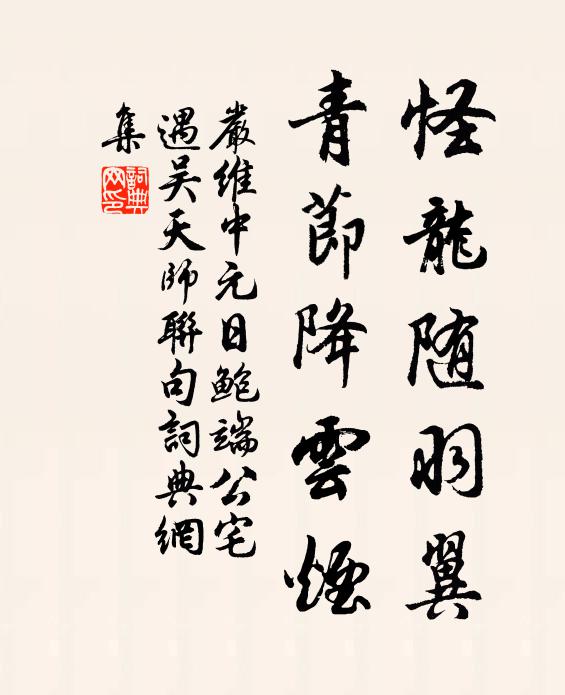 怪龍随羽翼
青節降雲煙
嚴維中元日鲍端公宅
遇吴天師聯句詞典網
集
詞典
网印